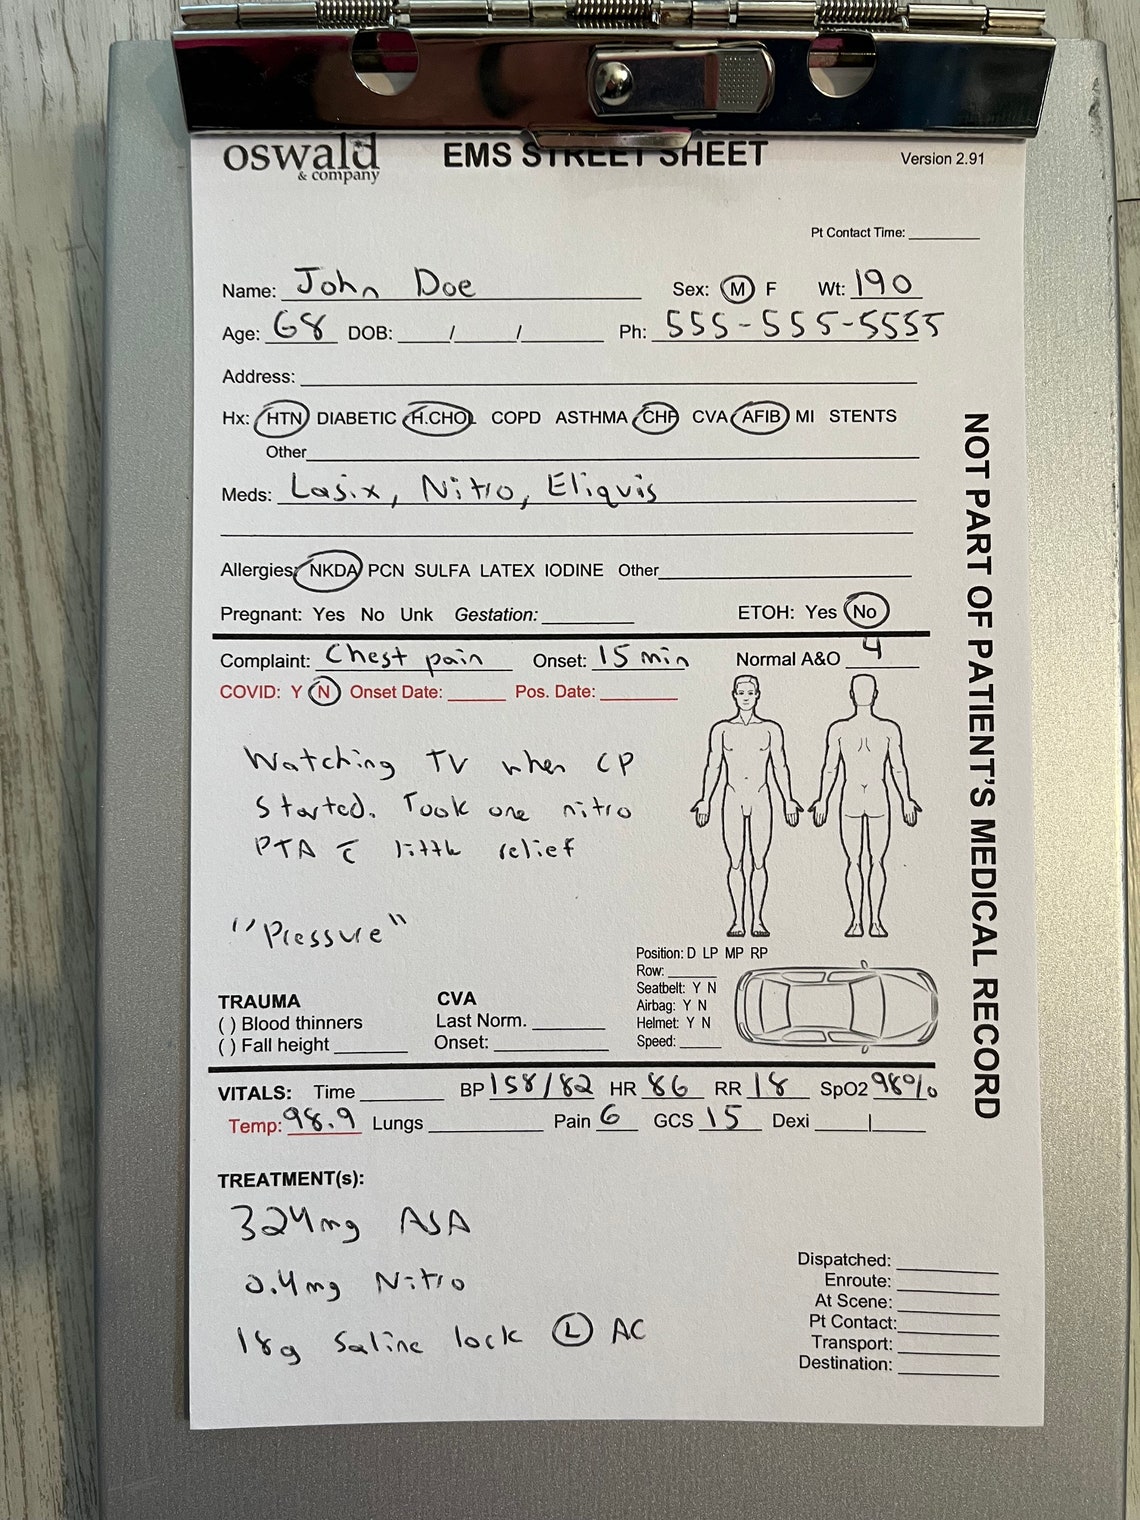 oswald
& company
EMS STREET SHEET
Version 2.91
Pt Contact Time: ________
Name: John Doe Sex: M F Wt: 190
Age: 68 DOB: ____/____/____ Ph: 555-555-5555
Address: ________
Hx: HTN DIABETIC H.CHOL COPD ASTHMA CHF CVA AFIB MI STENTS
Other________
Meds: Lasix, Nitro, Eliquis
Allergies: NKDA PCN SULFA LATEX IODINE Other________
Pregnant: Yes No Unk Gestation: ________ ETOH: Yes No
Complaint: Chest pain Onset: 15 min Normal A&O 4
COVID: Y N Onset Date: ______ Pos. Date: ________
Watching TV when CP
started. Took one nitro
PTA c̄ little relief
"Pressure"
Position: D LP MP RP
Row: ______
Seatbelt: Y N
Airbag: Y N
Helmet: Y N
Speed: _____
TRAUMA
( ) Blood thinners
( ) Fall height ________
CVA
Last Norm. ________
Onset: ________
VITALS: Time ________ BP 158/82 HR 86 RR 18 SpO2 98%
Temp: 98.9 Lungs ________ Pain 6 GCS 15 Dexi _____|_____
TREATMENT(s):
324mg ASA
0.4mg Nitro
18g Saline lock Ⓛ AC
Dispatched: ________
Enroute: ________
At Scene: ________
Pt Contact: ________
Transport: ________
Destination: ________
NOT PART OF PATIENT'S MEDICAL RECORD